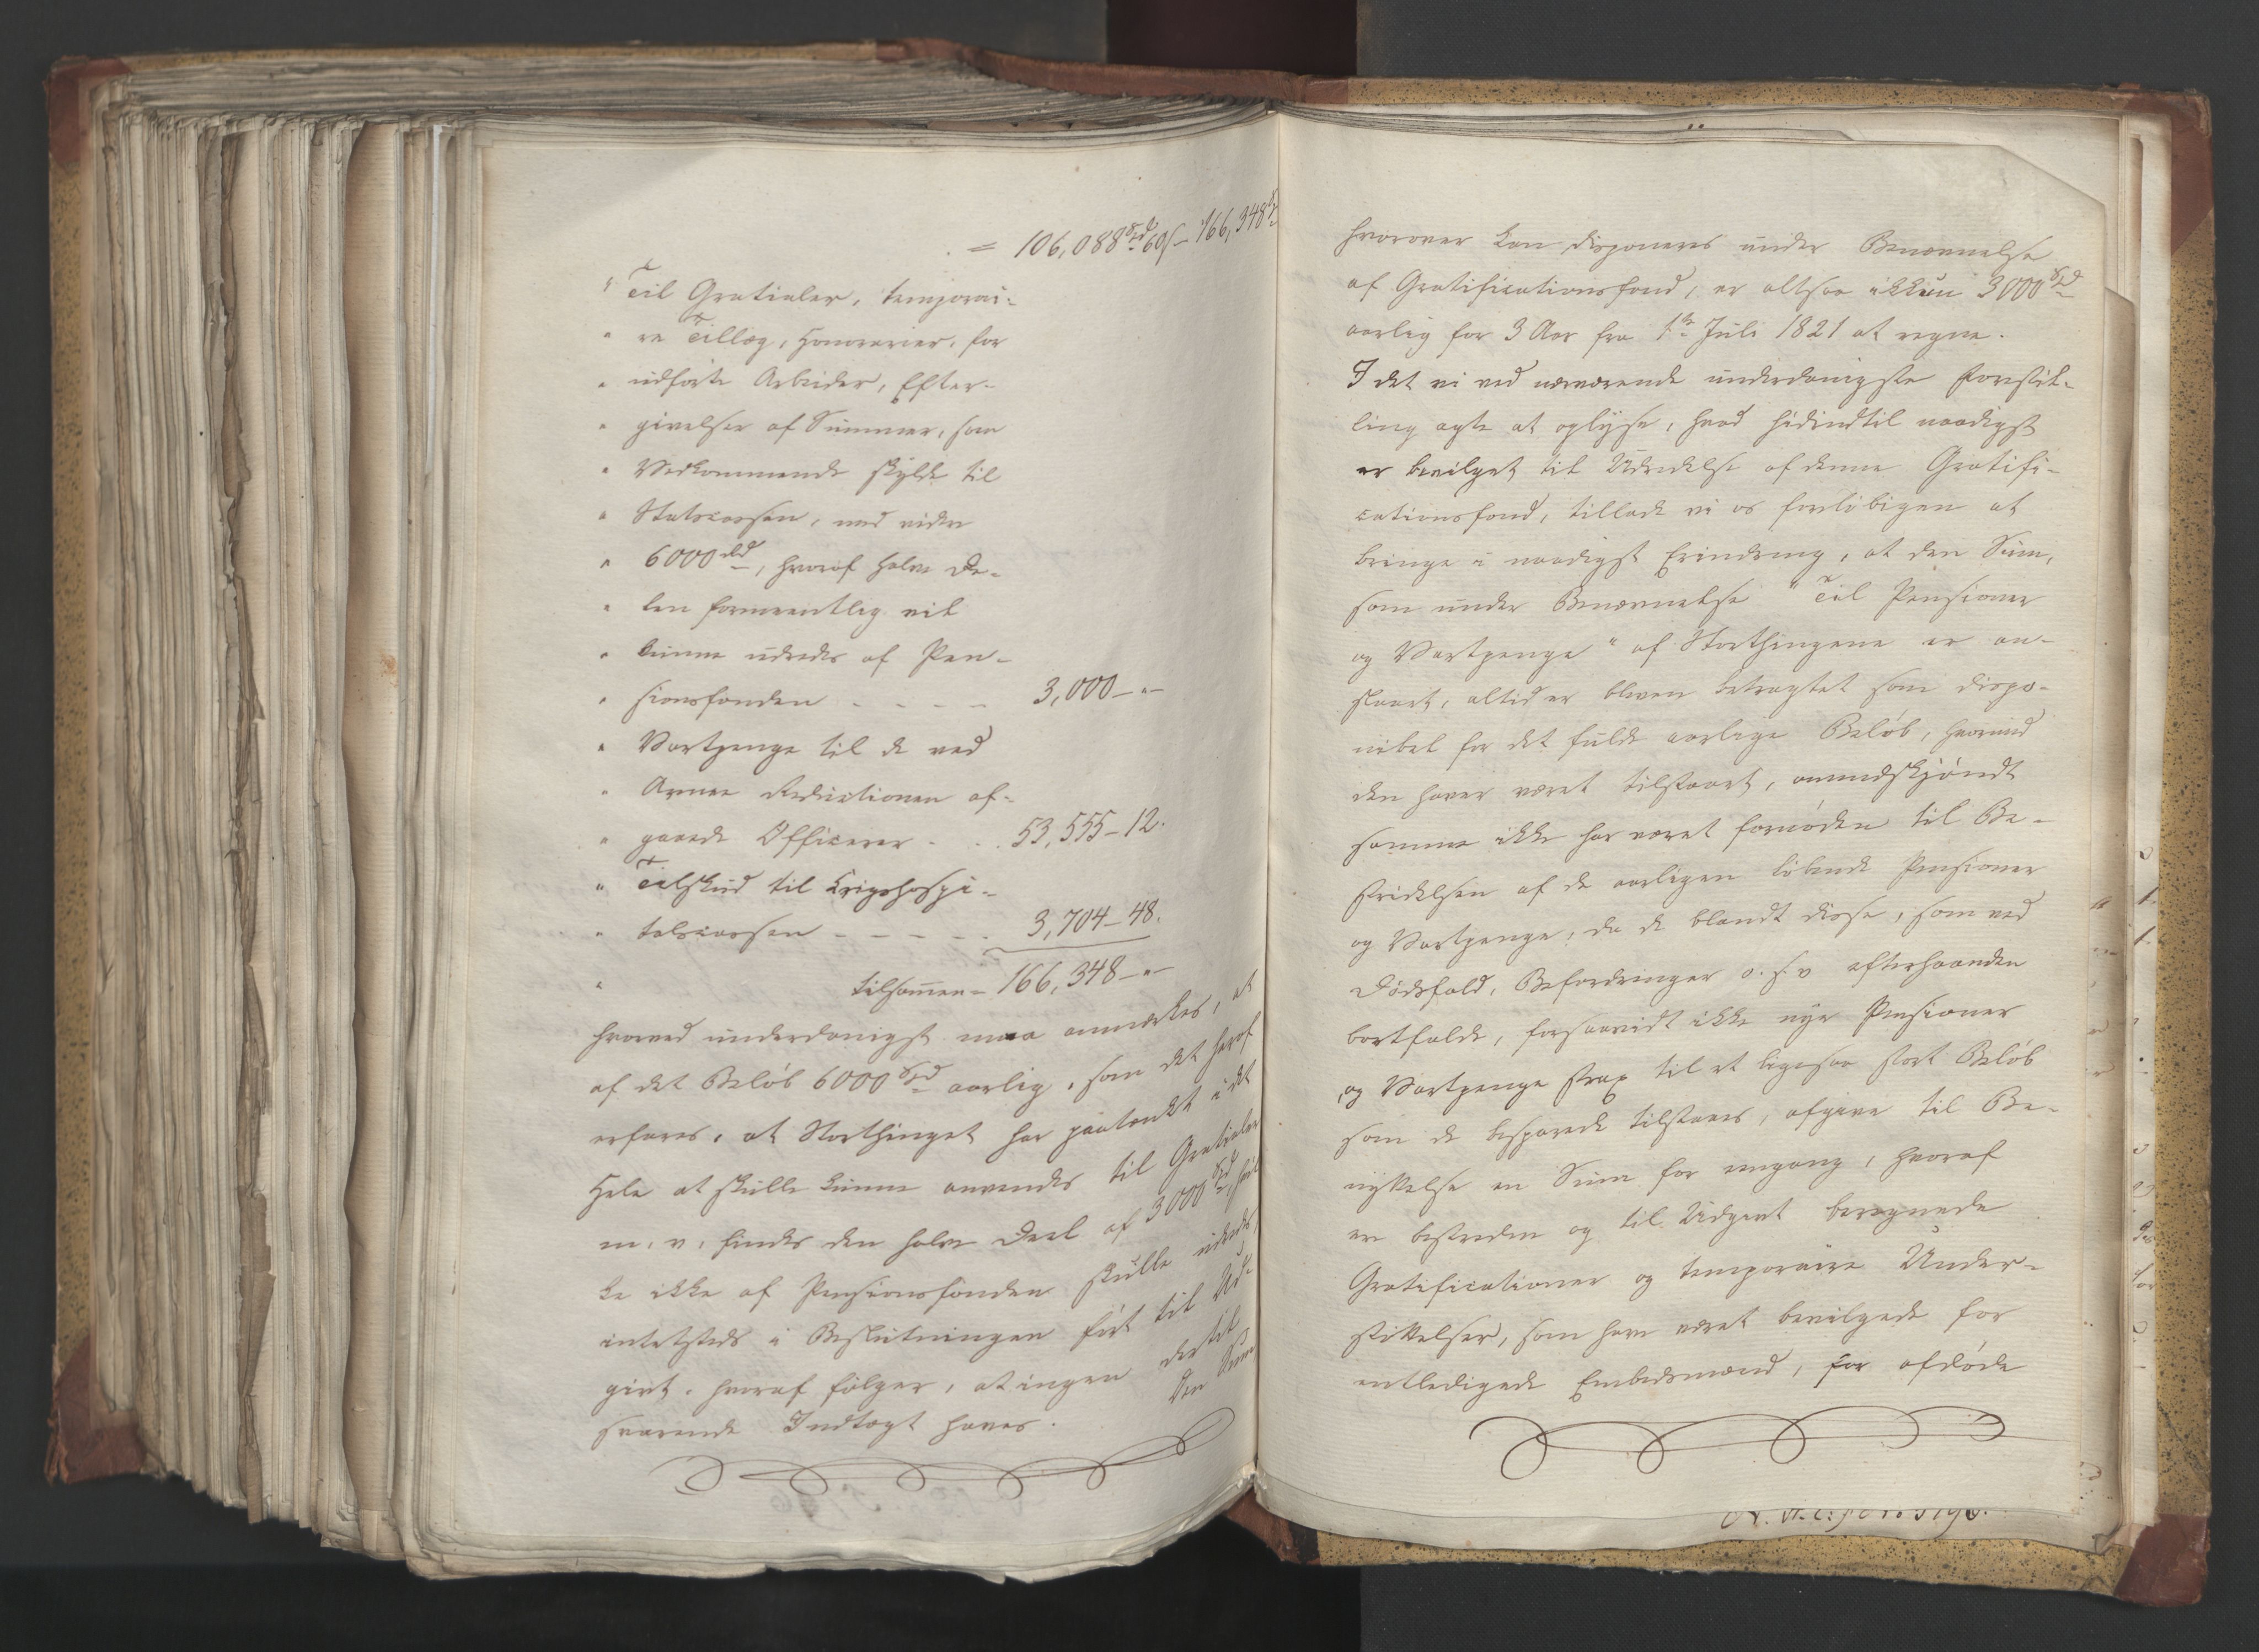 = 106,088 Spd 60 s - 166,348 Spd
" Til Gratialer, temporai-
" re Tillæg, Honorarier, for
" udførte Arbeider, Efter-
" givelser af Summer, som
" Vedkommende skylde til
" Statscassen, med videre
" 6000 Spd, hvoraf halve De-
" len formeentlig vil
" kunne udredes af Pen-
" sionsfonden - - - - 3,000 - " -
" Vartpenge til de ved
" Armee Reductionen af-
" gaaede Officerer - . . 53,555 - 12.
" Tilskud til Krigshospi-
" talscassen - - - - - 3,704 - 48.
" tilsammen = 166,348 - " -
hvorved underdanigst maa anmærkes, at
af det Beløb 6000 Spd aarlig, som det heraf
erfares, at Storthinget har paatænkt i det
Hele at skulle kunne anvendes til Gratialer
m. v. findes den halve Deel af 3000 Spd, hvil
ke ikke af Pensionsfonden skulle udredes,
intetsteds i Beslutningen ført til Ud-
givt, hvoraf følger, at ingen dertil
svarende Indtægt haves.
Den Sum
hvorover kan disponeres under Benævnelse
af Gratificationsfond, er altsaa ikkun 3000 Spd
aarlig for 3 Aar fra 1ste Juli 1821 at regne.
I det vi ved nærværende underdanigste Forestil-
ling agte at oplyse, hvad hidindtil naadigst
er bevilget til Udredelse af denne Gratifi-
cationsfond, tillade vi os foreløbigen at
bringe i naadigst Erindring, at den Sum,
som under Benævnelse " Til Pensioner
og Vartpenge " af Storthingene er an-
slaaet, altid er bleven betragtet som dispo-
nibel for det fulde aarlige Beløb, hvormed
den haver været tilstaaet, omendskjøndt
samme ikke har været fornøden til Be-
stridelsen af de aarligen løbende Pensioner
og Vartpenge, da de blandt disse, som ved
Dødsfald, Befordringer o. s. v. efterhaanden
bortfalde, forsaavidt ikke nye Pensioner
og Vartpenge strax til et ligesaa stort Beløb
som de besparede tilstaaes, afgive til Be-
nyttelse en Sum for engang, hvoraf
ere bestreden og til Udgivt beregnede
Gratificationer og temporaire Under-
støttelser, som have været bevilgede for
entledigede Embedsmænd, for afdøde